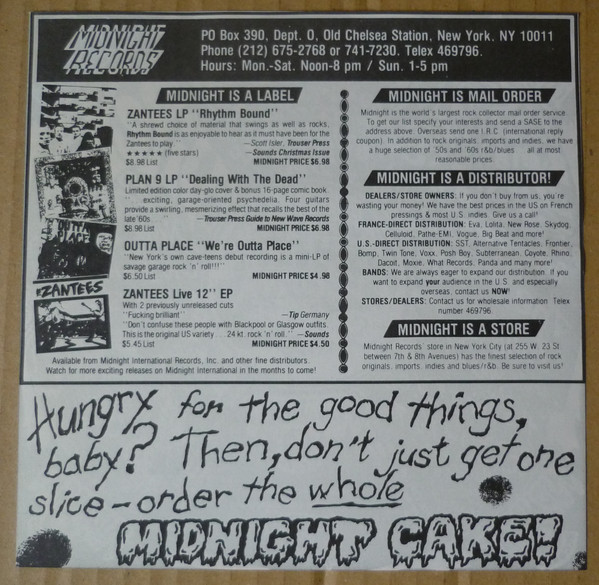 MIDNIGHT
RECORDS
PO Box 390, Dept. O, Old Chelsea Station, New York, NY 10011
Phone (212) 675-2768 or 741-7230. Telex 469796.
Hours: Mon.-Sat. Noon-8 pm / Sun. 1-5 pm
MIDNIGHT IS A LABEL
ZANTEES LP "Rhythm Bound"
"A shrewd choice of material that swings as well as rocks,
Rhythm Bound is as enjoyable to hear as it must have been for the
Zantees to play." —Scott Isler, Trouser Press
★★★★★ (five stars) —Sounds Christmas Issue
$8.98 List MIDNIGHT PRICE $6.98
PLAN 9 LP "Dealing With The Dead"
Limited edition color day-glo cover & bonus 16-page comic book.
"... exciting, garage-oriented psychedelia. Four guitars
provide a swirling, mesmerizing effect that recalls the best of the
late '60s" —Trouser Press Guide to New Wave Records
$8.98 List MIDNIGHT PRICE $6.98
OUTTA PLACE "We're Outta Place"
"New York's own cave-teens debut recording is a mini-LP of
savage garage rock 'n' roll!!!"
$6.50 List MIDNIGHT PRICE $4.98
ZANTEES Live 12" EP
With 2 previously unreleased cuts
"Fucking brilliant" —Tip Germany
"Don't confuse these people with Blackpool or Glasgow outfits.
This is the original US variety ... 24 kt. rock 'n' roll." —Sounds
$5.45 List MIDNIGHT PRICE $4.50
Available from Midnight International Records, Inc. and other fine distributors.
Watch for more exciting releases on Midnight International in the months to come!
ZANTEES
MIDNIGHT IS MAIL ORDER
Midnight is the world's largest rock collector mail order service.
To get our list specify your interests and send a SASE to the
address above. Overseas send one I.R.C. (international reply
coupon). In addition to rock originals, imports and indies, we have
a huge selection of '50s and '60s r&b/blues all at most
reasonable prices.
MIDNIGHT IS A DISTRIBUTOR!
DEALERS/STORE OWNERS: If you don't buy from us, you're
wasting your money! We have the best prices in the US on French
pressings & most U.S. indies. Give us a call!
FRANCE-DIRECT DISTRIBUTION: Eva, Lolita, New Rose, Skydog,
Celluloid, Pathe-EMI, Vogue, Big Beat and more!
U.S.-DIRECT DISTRIBUTION: SST, Alternative Tentacles, Frontier,
Bomp, Twin Tone, Voxx, Posh Boy, Subterranean, Coyote, Rhino,
Dacoit, Moxie, What Records, Panda and many more!
BANDS: We are always eager to expand our distribution. If you
want to expand your audience in the U.S. and especially
overseas, contact us NOW!
STORES/DEALERS: Contact us for wholesale information Telex
number 469796.
MIDNIGHT IS A STORE
Midnight Records' store in New York City (at 255 W. 23 St.
between 7th & 8th Avenues) has the finest selection of rock
originals, imports, indies and blues/r&b. Be sure to visit us!
Hungry for the good things,
baby? Then, don't just get one
slice - order the whole
MIDNIGHT CAKE!